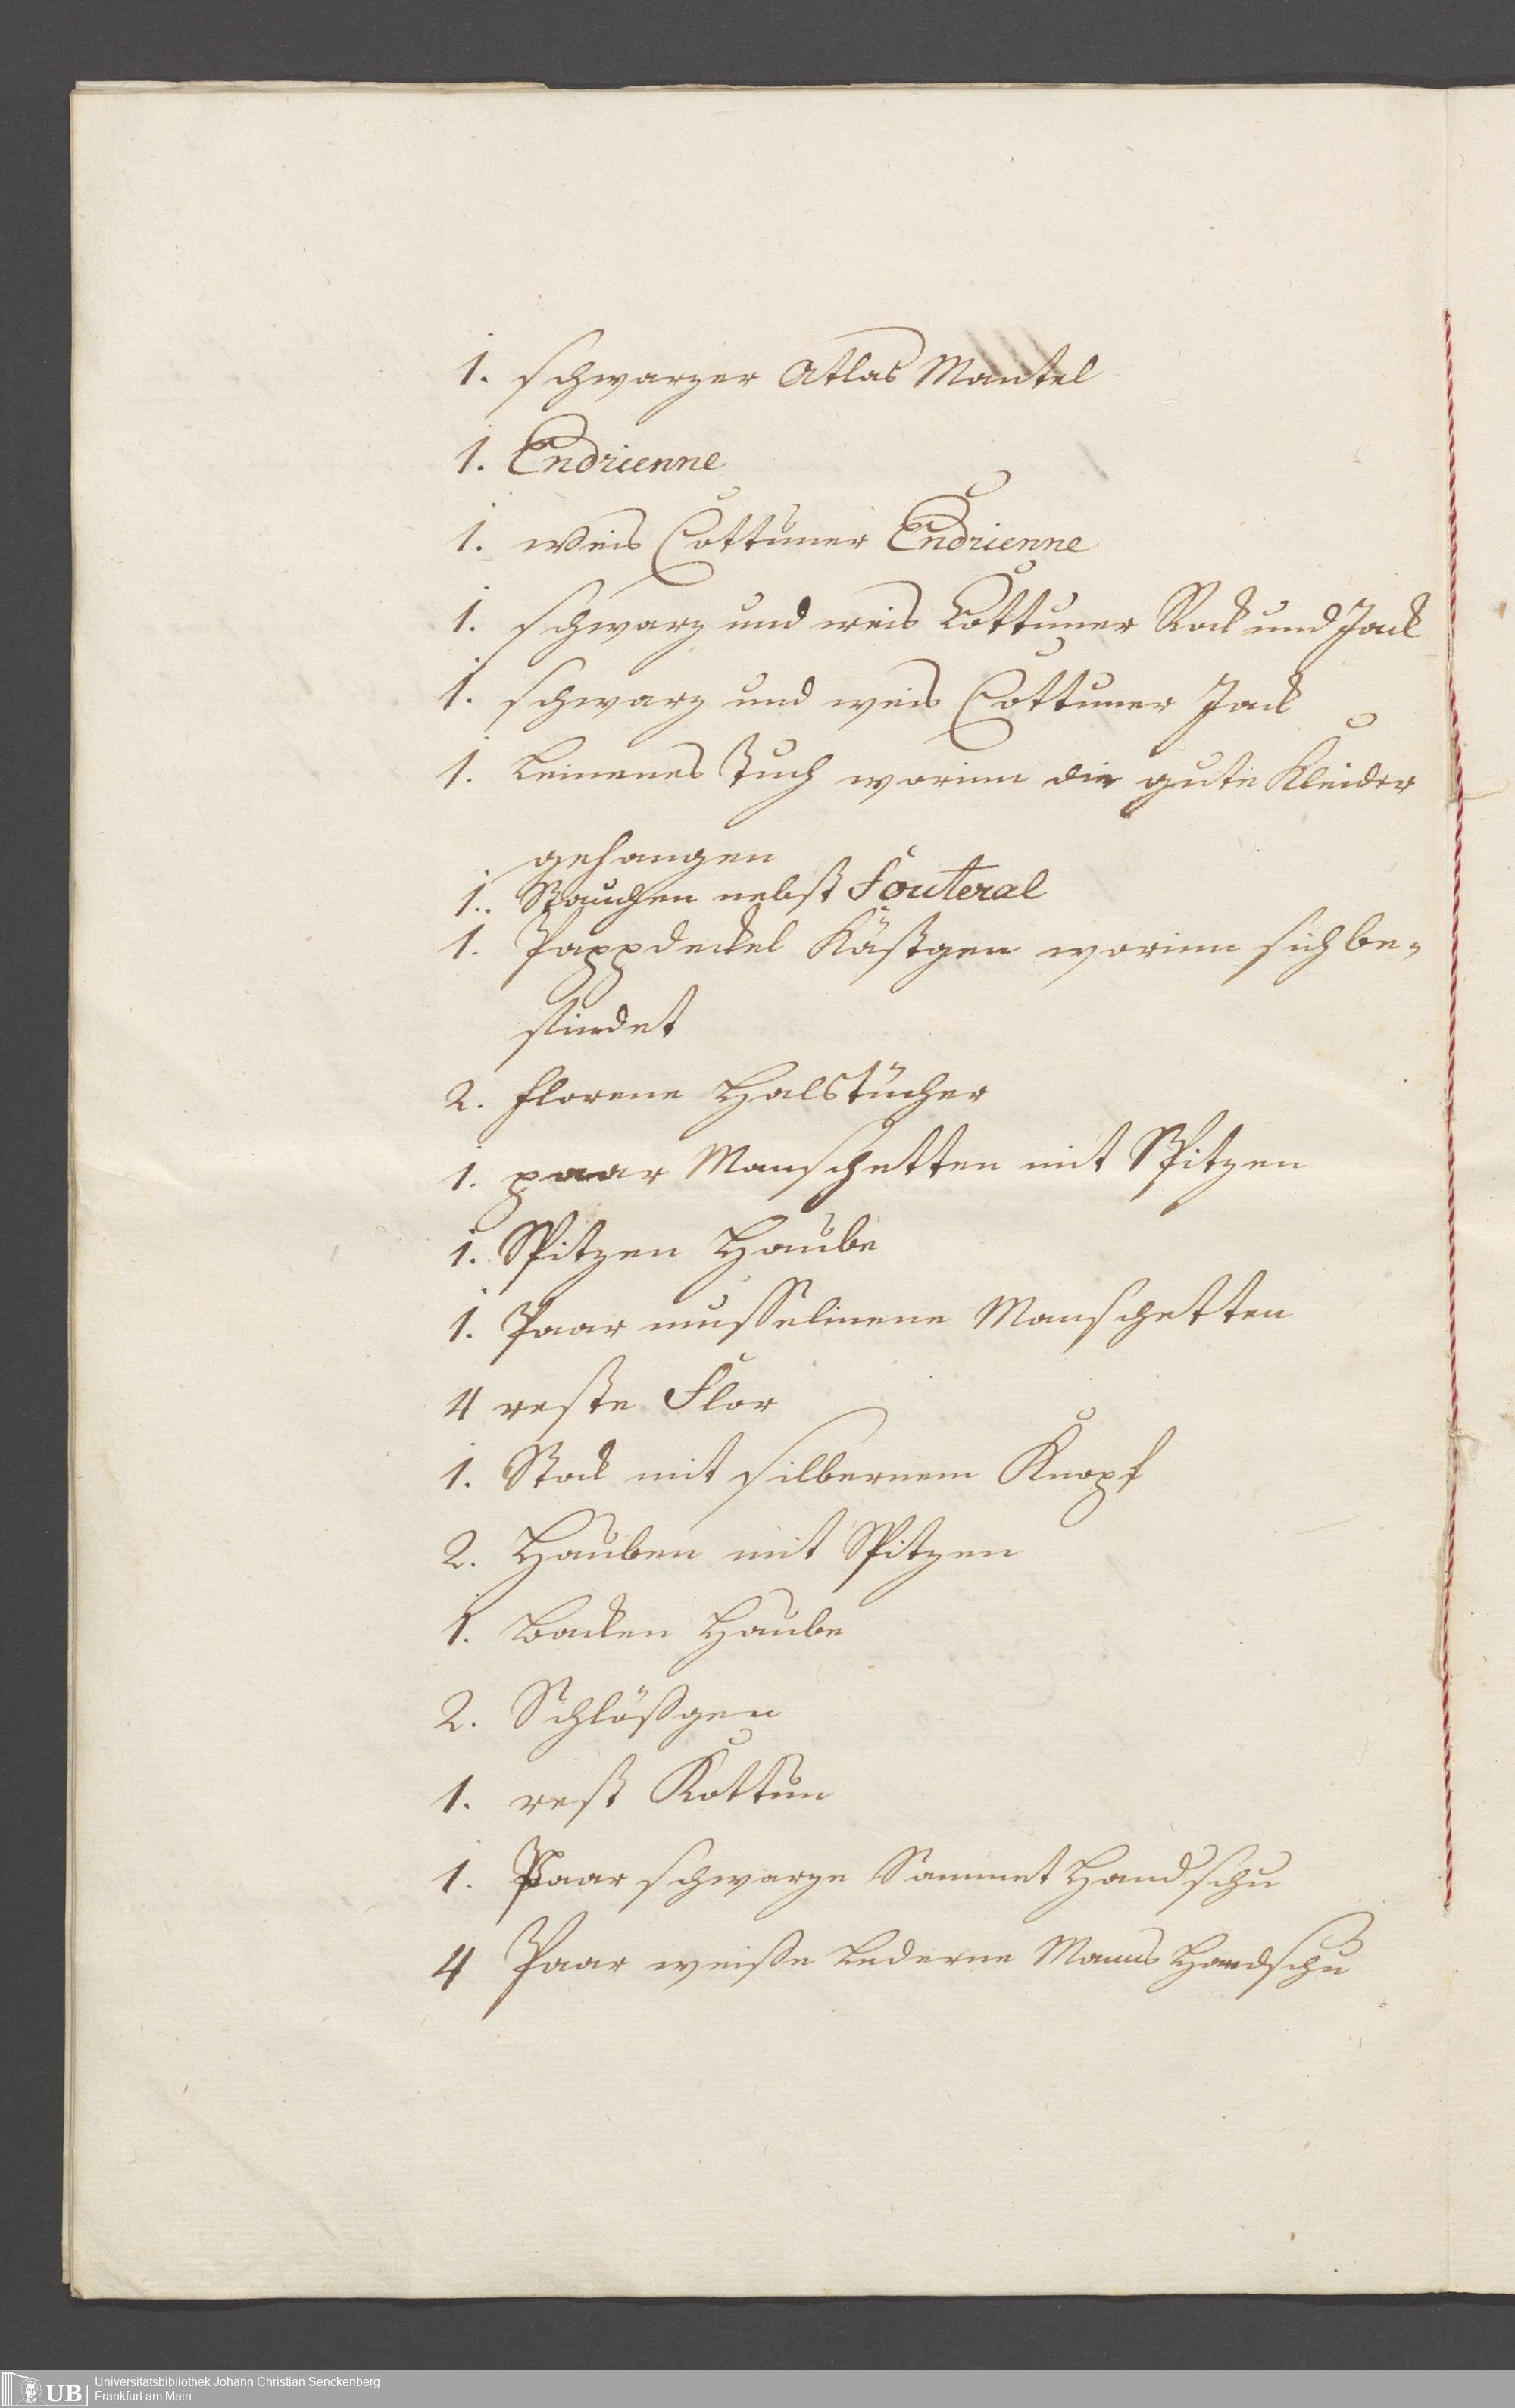 1. schwarzer Atlas Mantel
1. Endrienne
1. weis Cottuner Endrienne
1. schwarz und weis Cottuner Rock und Jack
1. schwarz und weis Cottuner Jack
1. Leinenes Tuch worinn die gute Kleider
gehangen
1. Stauchen nebst Fouteral
1. Pappdeckel Kästgen worinn sich be-
findet
2. florene Halstücher
1. paar Manschetten mit Spitzen
1. Spitzen Haube
1. Paar musselinene Manschetten
4 reste Flor
1. Stock mit silbernem Knopf
2. Hauben mit Spitzen
1. Backen Haube
2. Schlößgen
1. rest Kottun
1. Paar schwarze Sammet Handschu
4 Paar weisse Lederne Manns Handschu
UB Universitätsbibliothek Johann Christian Senckenberg
Frankfurt am Main